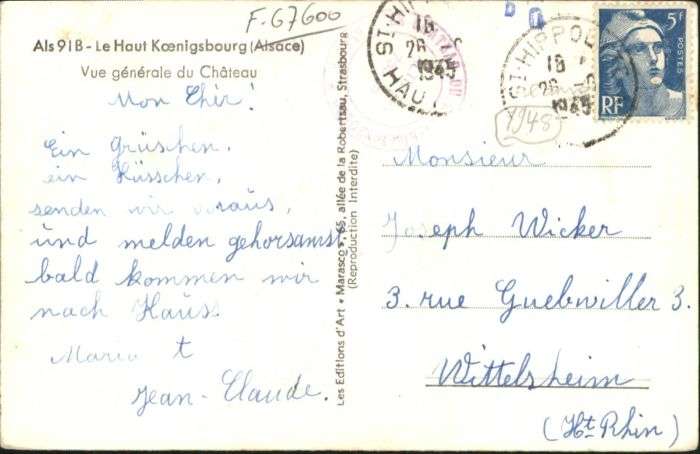 F-67600
Als 91B - Le Haut Kœnigsbourg (Alsace)
Vue générale du Château
Mon Chér!
Ein Grüschen,
ein Küsschen,
senden wir voraüs,
ünd melden gehorsamst
bald kommen wir
nach Haüs
Maria t
Jean-Claude.
Les Editions d'Art « Marasco », 65, allée de la Robertsau, Strasbourg
(Reproduction Interdite)
ST HIPPOL
18
26
1945
HT RHIN
5F
POSTES
RF
1948
Monsieur
Joseph Wicker
3. rue Guebwiller 3.
Wittelsheim
(Ht Rhin)